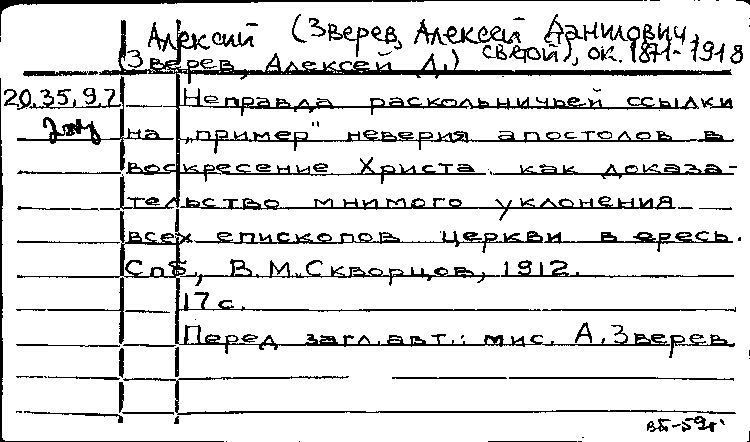 Алексий (Зверев, Алексей Данилович,
святой), ок. 1871-1918
(Зверев, Алексей Д.)
20.35.9.7 Неправда раскольничьей ссылки
на „пример" неверия апостолов в
воскресение Христа как доказа-
тельство мнимого уклонения
всех епископов церкви в ересь.
Спб, В.М.Скворцов, 1912.
17 с.
Перед загл.авт.: мис. А.Зверев